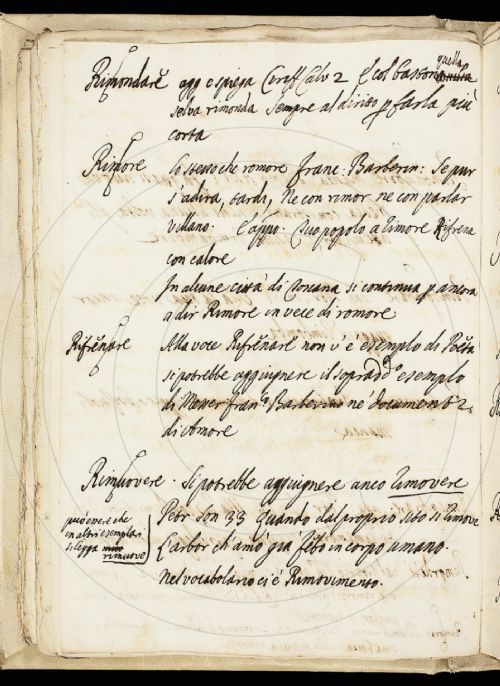 Rimondare agg e spiega Ciriff Calv 2 E col baston quella
selva rimonda sempre al diritto p farla più
corta
Rimore Lo stesso che romore Franc: Barberin: Se pur
s'adira, bardi, Ne con rimor ne con parlar
villano. E app.o Suo popolo a rimore Rifrena
con calore
In alcune città di Toscana si continua p ancora
a dir Rimore in vece di romore
Rifrenare Alla voce Rifrenare non v'è esempio di Poeta
si potrebbe aggiugnere il sopradd.o esempio
di Messer Fran.co Barberino ne' documenti
di Amore
Rimuovere. Si potrebbe aggiugnere anco rimovere
Petr Son 33 Quando dal proprio sito si rimove
può essere che
in altri esemplar
si legga rimuove
L'arbor ch'amò già Febo in corpo umano.
Nel vocabolario ci è Rimovimento.